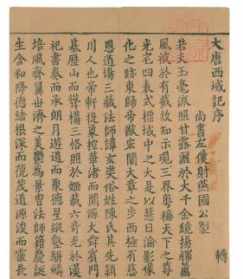 轉
大唐西域記序
尚書左僕射燕國公製
若夫玉毫流照甘露灑於大千金鏡揚暉薰
風被於有截故知示現三界粵稱天下之尊
光宅四表式標域中之大是以慧日淪影像
化之跡東歸帝猷宏闡大章之步西極有慈
恩道場三藏法師諱玄奘俗姓陳氏其先潁
川人也帝軒提象控華渚而開源大舜賓門
基歷山而聳構三恪照於姬載六奇光於漢
祀書奏而承朗月遊道而聚德星縱壑駢鱗
培風齊翼世濟之美鬱為景冑法師籍慶誕
生含和降德結根深而茂道源浚而靈長